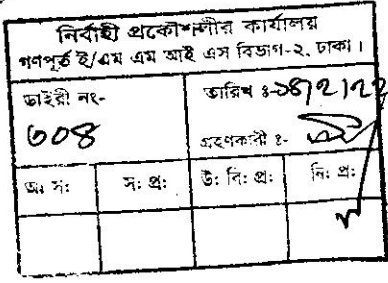 নির্বাহী প্রকৌশলীর কার্যালয়
গণপূর্ত ই/এম এম আই এস বিভাগ-২, ঢাকা।
ডাইরী নং-
তারিখ ঃ-১৪/২/২২
৩০৪
গ্রহণকারী ঃ-
অঃ সঃ
সঃ প্রঃ
উঃ বিঃ প্রঃ
নিঃ প্রঃ